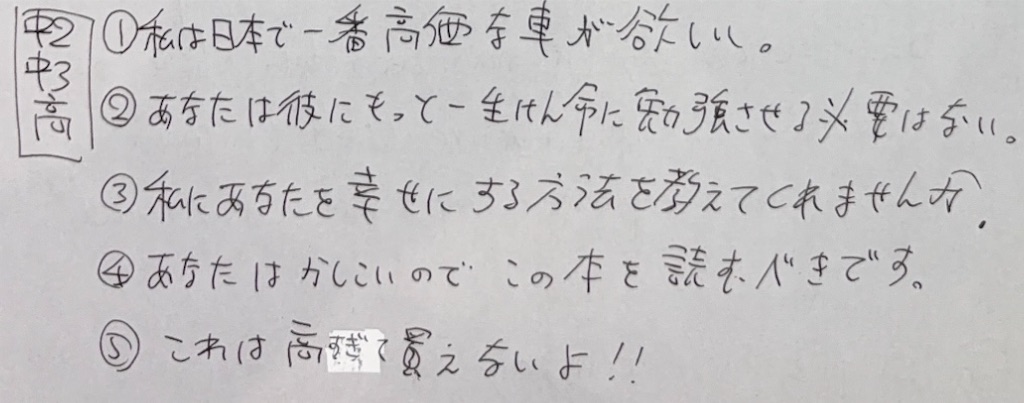 中2
中3
高
①私は日本で一番高価な車が欲しい。
②あなたは彼にもっと一生けん命に勉強させる必要はない。
③私にあなたを幸せにする方法を教えてくれませんか.
④あなたはかしこいのでこの本を読むべきです。
⑤これは高すぎて買えないよ!!